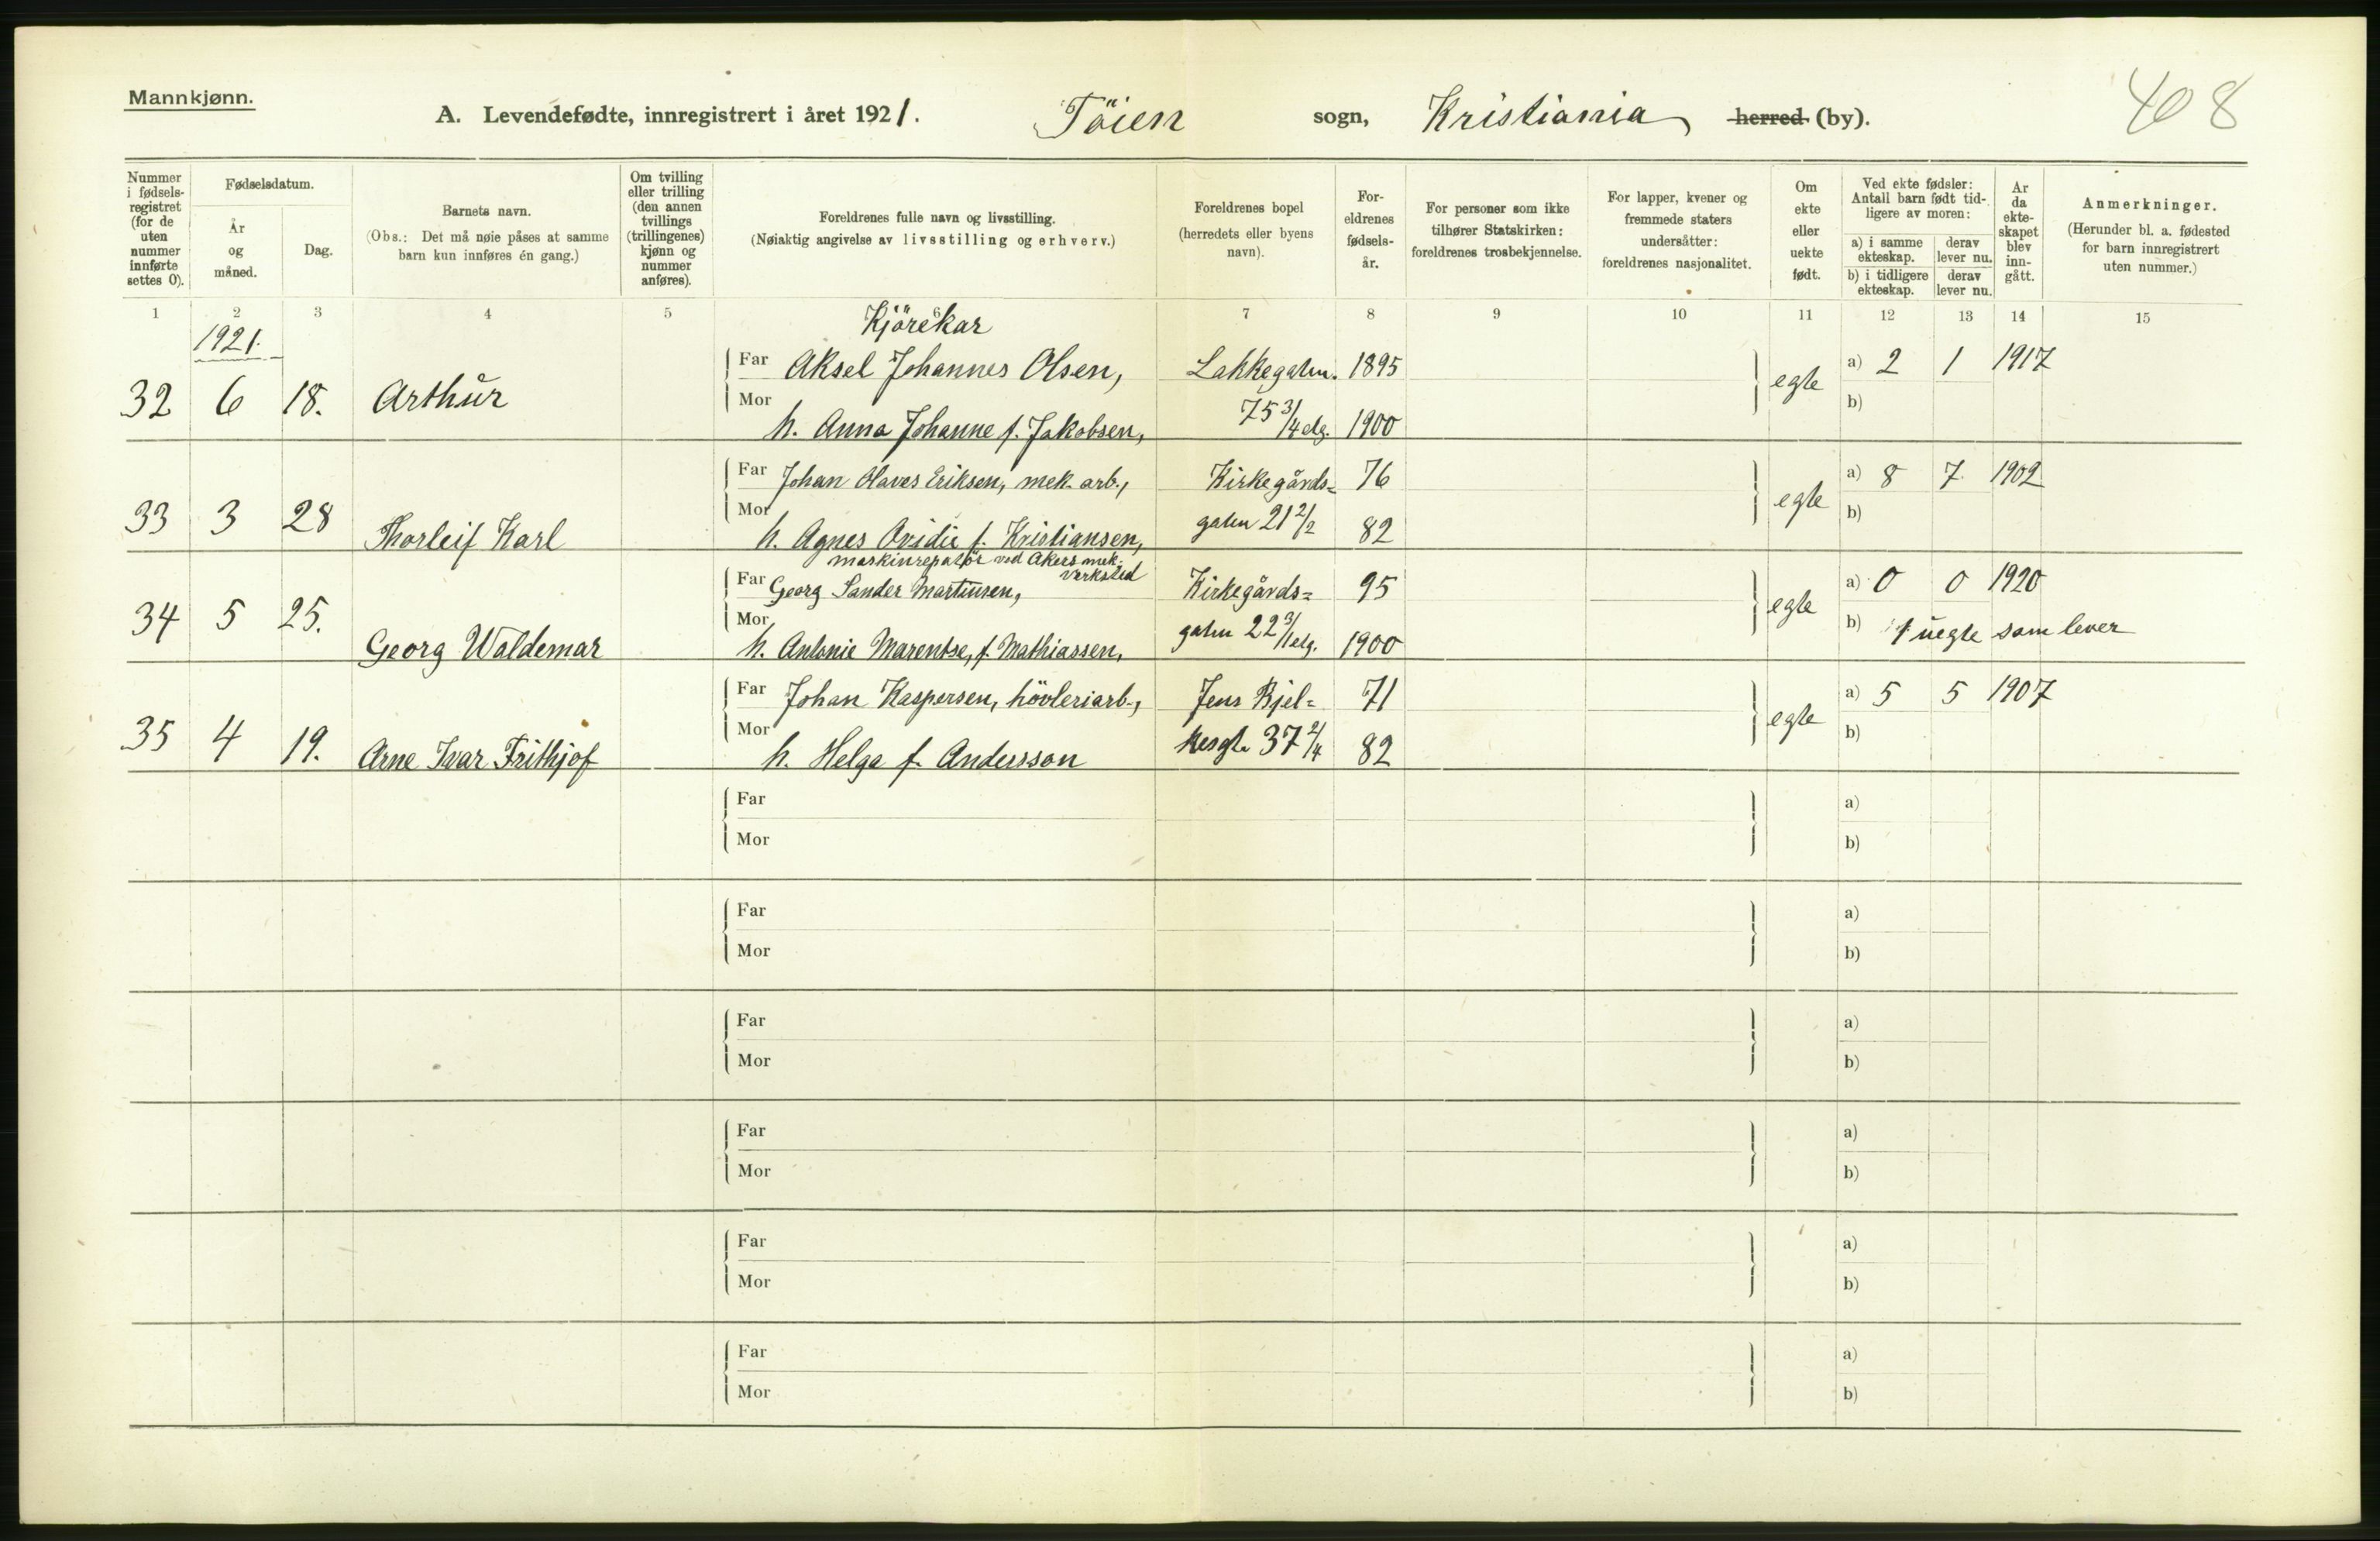 Mannkjønn.
A. Levendefødte, innregistrert i året 1921. Töien sogn, Kristiania herred (by).
408
Nummer i fødsels-registret (for de uten nummer innførte settes 0).
Fødselsdatum.
År og måned.
Dag.
Barnets navn.
(Obs.: Det må nøie påses at samme barn kun innføres én gang.)
Om tvilling eller trilling (den annen tvillings (trillingenes) kjønn og nummer anføres).
Foreldrenes fulle navn og livsstilling.
(Nøiaktig angivelse av livsstilling og erhverv.)
Foreldrenes bopel (herredets eller byens navn).
For-eldrenes fødsels-år.
For personer som ikke tilhører Statskirken: foreldrenes trosbekjennelse.
For lapper, kvener og fremmede staters undersåtter: foreldrenes nasjonalitet.
Om ekte eller uekte født.
Ved ekte fødsler: Antall barn født tid-ligere av moren:
a) i samme ekteskap.
derav lever nu.
b) i tidligere ekteskap.
derav lever nu.
År da ekte-skapet blev inn-gått.
Anmerkninger.
(Herunder bl. a. fødested for barn innregistrert uten nummer.)
1 2 3 4 5 6 7 8 9 10 11 12 13 14 15
1921.
Kjörekar
Far Aksel Johannes Olsen, Lakkegaten. 1895 a) 2 1 1917
32 6 18. Arthur egte
Mor h. Anna Johanne f. Jakobsen, 75 3/4 etg. 1900 b)
Far Johan Olaves Eriksen, mek. arb., Kirkegårds= 76 a) 8 7. 1902
33 3 28 Thorleif Karl egte
Mor h. Agnes Ovidie f. Kristiansen, gaten 21 2/2 82 b)
maskinreparatör ved Akers mek. verksted
Far Georg Sander Martinsen, Kirkegårds= 95 a) 0 0 1920
34 5 25. Georg Waldemar egte
Mor h. Antonie Marentse, f. Mathiassen, gaten 22 3/1 etg. 1900 b) 1 uegte som lever
Far Johan Kaspersen, hövleriarb., Jens Bjel= 71 a) 5 5 1907
35 4 19. Arne Ivar Frithjof egte
Mor h. Helga f. Andersson kesgt. 37 2/4 82 b)
Far a)
Mor b)
Far a)
Mor b)
Far a)
Mor b)
Far a)
Mor b)
Far a)
Mor b)
Far a)
Mor b)